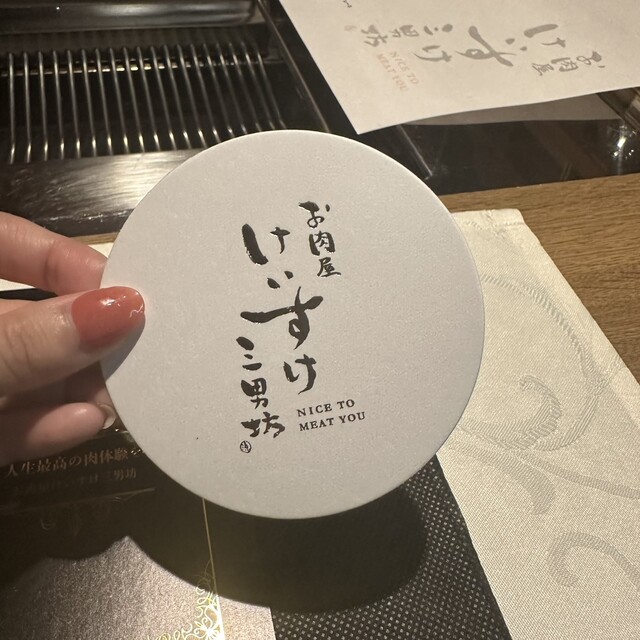 お肉屋
けいすけ
三男坊
NICE TO
MEAT YOU
お肉屋
けいすけ
三男坊
NICE TO
MEAT YOU
人生最高の肉体験を